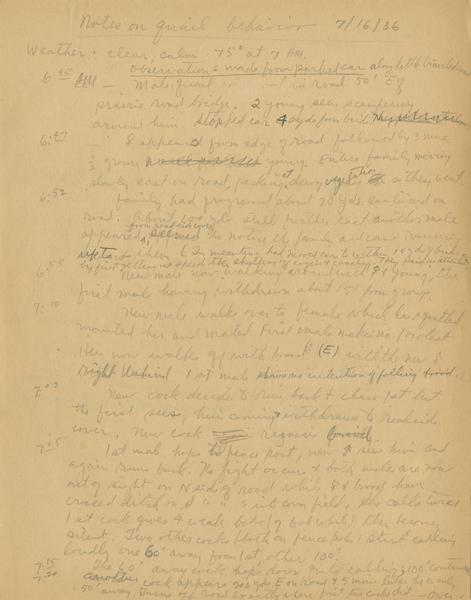 Notes on quail behavior 7/16/36
Weather - clear, calm 75° at 7 AM.
Observations made from parked car along little traveled road
6:45 AM — Male quail in road 50' E of
prairie road bridge. 2 young seen scampering
around him. Stopped car 40 yds from bird.
6:47 — ♀ appeared from edge of road followed by 3 more
½ grown young. Entire family moving
slowly east on road, pecking at dewy vegetation as they went
6:52 family had progressed about 20 yds. eastward on
road. About 100 yds still further east another male
appeared from roadside cover, seemed to notice the family and came running
up to them (In meantime had moved car to within 10 yds of birds
by first getting up speed then shutting off engine & coasting. They paid no attention
6:55 New male now walking around with ♀ & young, the
first male having withdrawn about 15' from group.
7:00 New male walks over to female which has squatted
mounted her and mated. First male makes no protest
Hen now walks off with brood (E) with the new ♂
Right behind 1st male shows no intention of following brood.
7:03 New cock decides to run back & chase 1st but
the first sees him coming & withdraws to roadside
cover. New cock regains brood.
7:05 1st male hops to fence post, new ♂ sees him and
again runs back. No fight occurs & both males are now
out of sight on N side of road while ♀ & brood have
crossed ditch on S " " " into corn field, she calls twice
1st cock gives 4 weak bobs (of bob white) then becomes
silent. Two other cocks (both on fence posts) start calling
loudly one 60' away from 1st other 100'.
7:15 The 60' away cock hops down, quits calling; 100' continues
7:20 another cock appears 200 yds E on road & 5 min later he is only
50' away. Turns off road exactly where first hen ducked — over